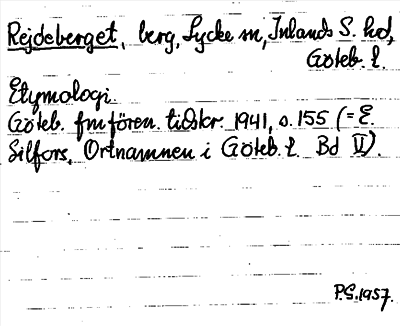 Rejdeberget, berg, Lycke sn, Inlands S. hd,
Göteb. l.
Etymologi.
Göteb. fmfören. tidskr. 1941, s. 155 (= E.
Silfors, Ortnamnen i Göteb. l. Bd II).
P.S. 1957.